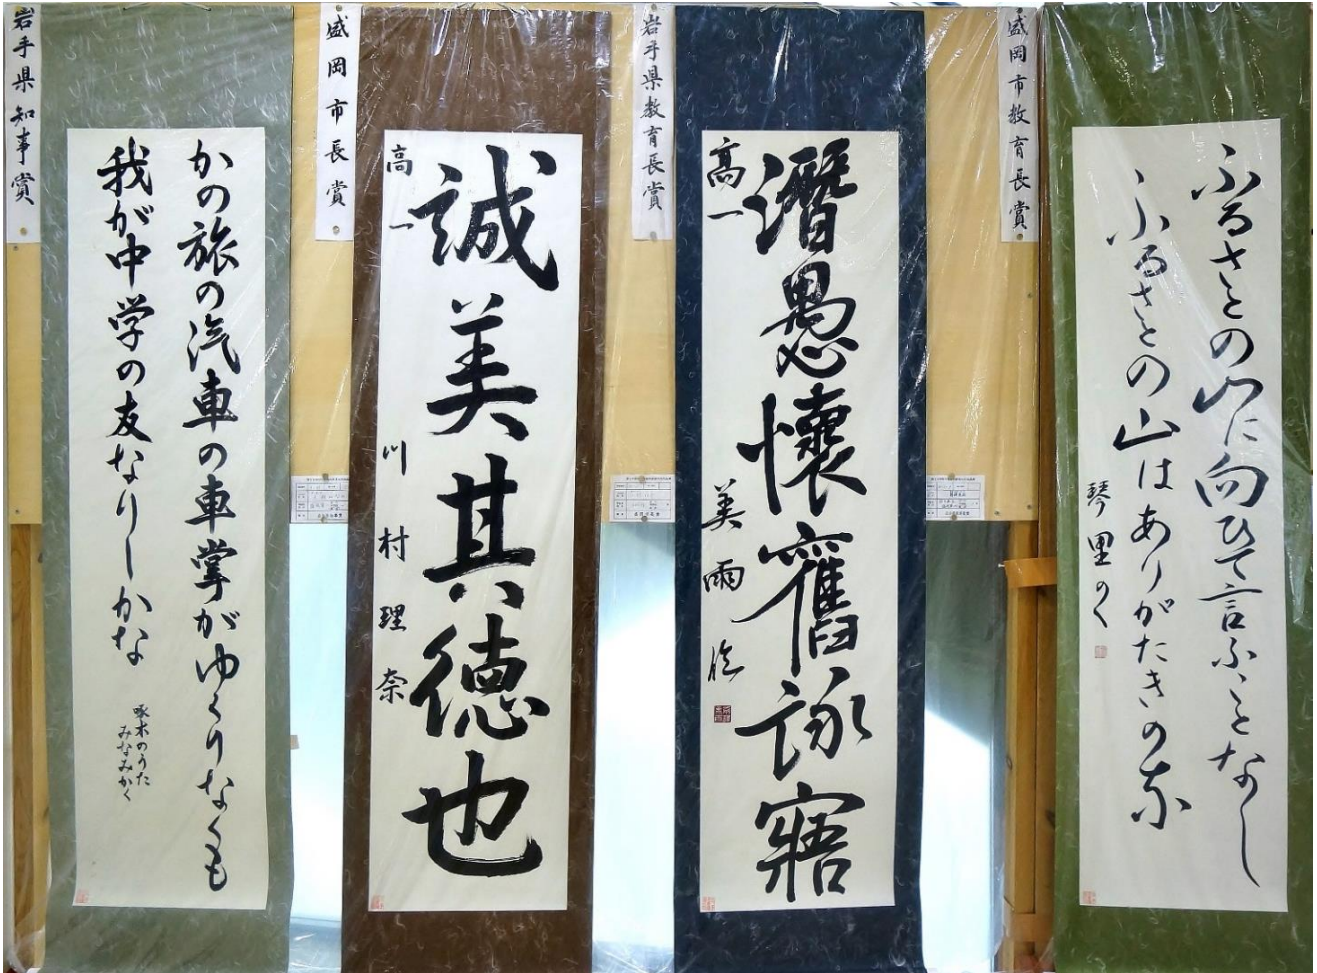 岩手県知事賞
かの旅の汽車の車掌がゆくりなくも
我が中学の友なりしかな
啄木のうた
みなみかく
盛岡市長賞
誠美其徳也
高一
川村理奈
岩手県教育長賞
潛愚懷舊詠寤
高一
美雨臨
盛岡市教育長賞
ふるさとの山に向ひて言ふことなし
ふるさとの山はありがたきの奈
琴里かく